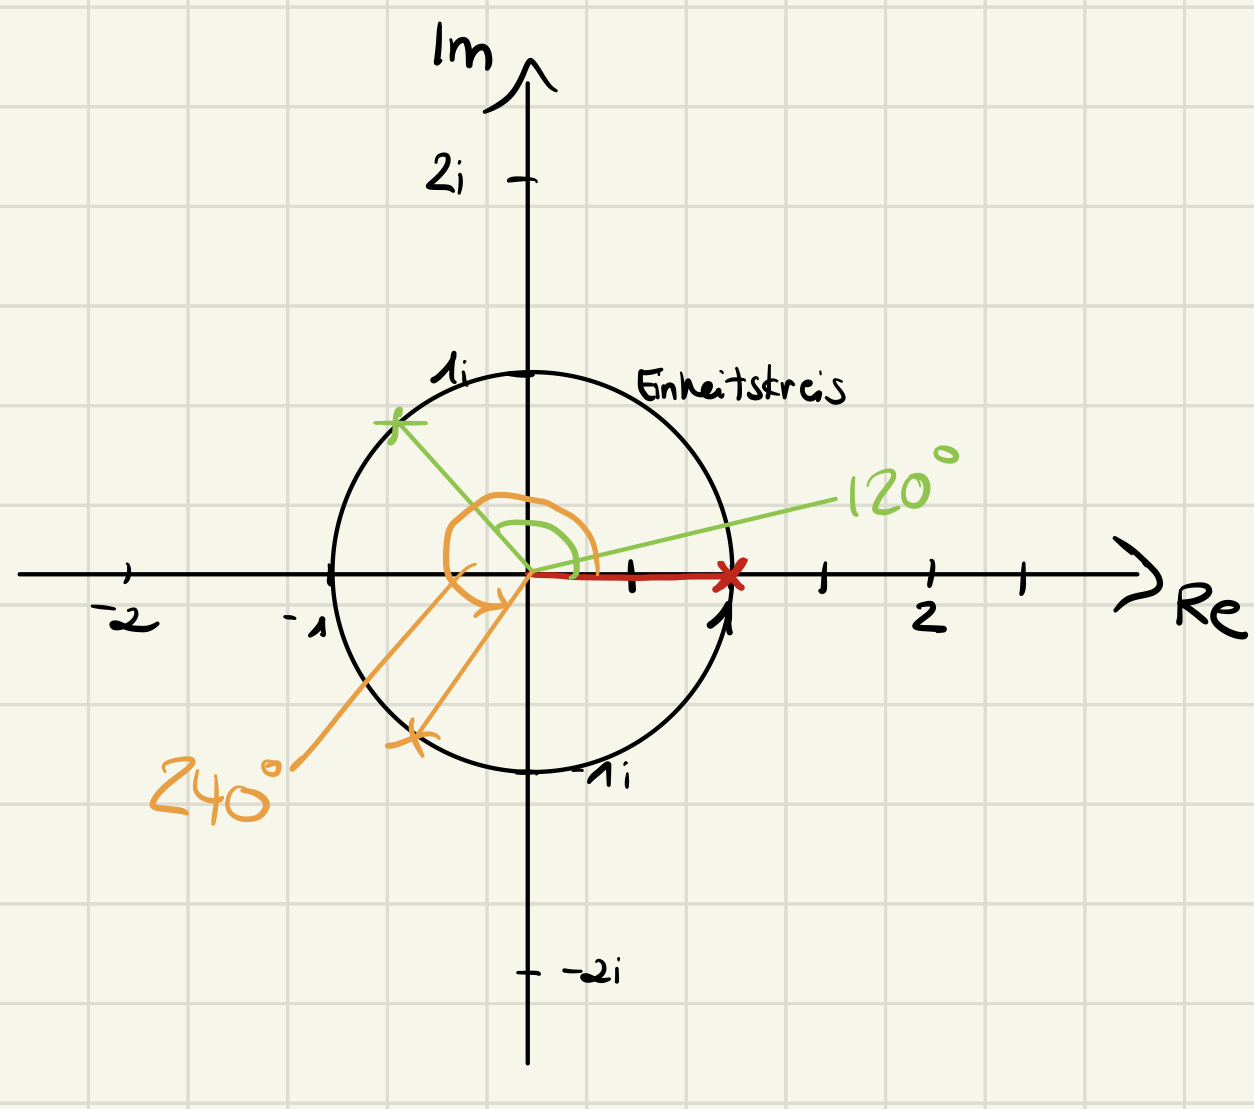 Im
2i
1i
Einheitskreis
120°
-2
-1
1
2
Re
240°
-1i
-2i